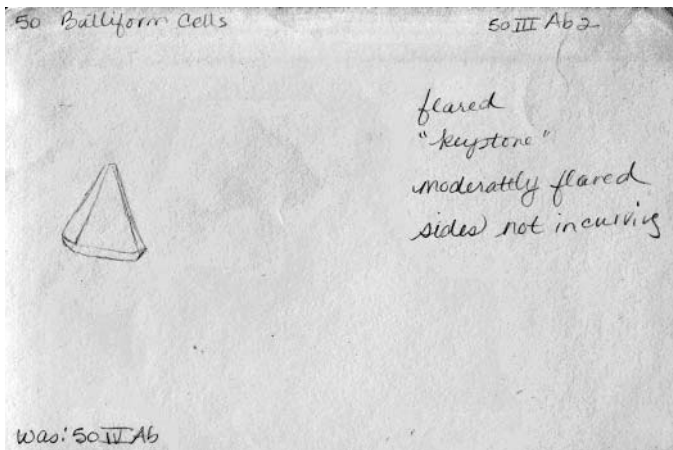 50 Balliform Cells
50 III Ab2
flared
"keystone"
moderately flared
sides not incurving
was: 50 IV Ab